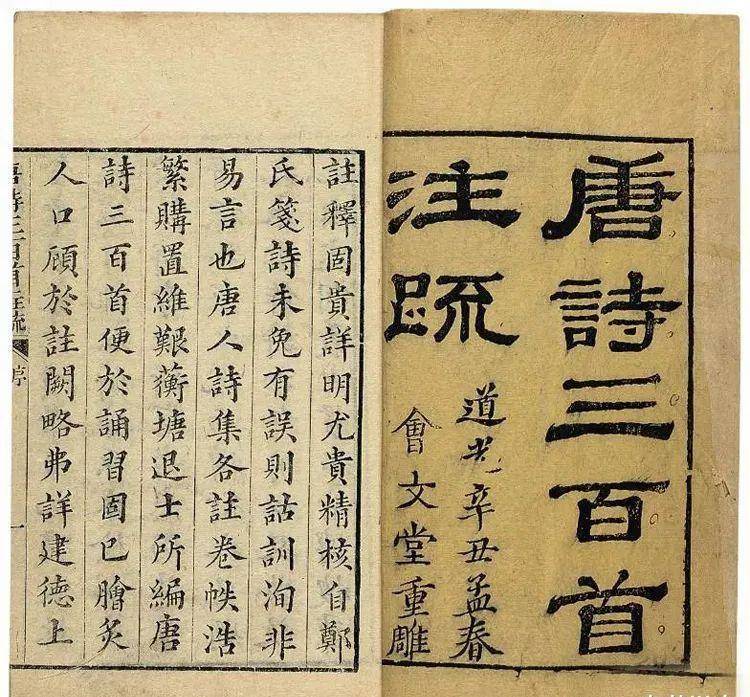 唐詩三百首
注疏
道光辛丑孟春
會文堂重雕
註釋固貴詳明尤貴精核自鄭
氏箋詩未免有誤則詁訓洵非
易言也唐人詩集各註卷帙浩
繁購置維艱蘅塘退士所編唐
詩三百首便於誦習固已膾炙
人口顧於註闕略弗詳建德上
唐詩三百首注疏 序 一